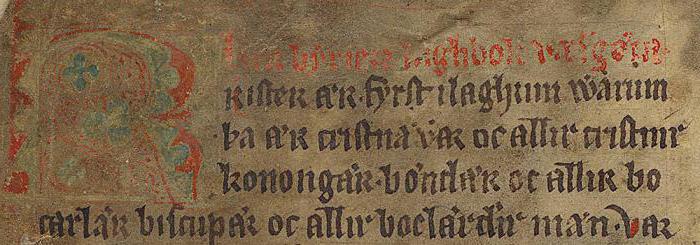 laghbok
rister ær. fyrst ilaghum warum
þa ær cristna var oc allir cristnir
konongær. bøndær oc allir bo
carlær biscupær oc allir boclærdir mæn. Var